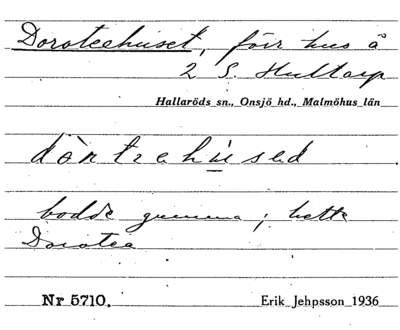 Doroteehuset, förr hus å
2 S. Hultarp
Hallaröds sn., Onsjö hd., Malmöhus län
dòrtrehùsed
bodde gumma; hette
Dorotea
Nr 5710. Erik Jehpsson 1936